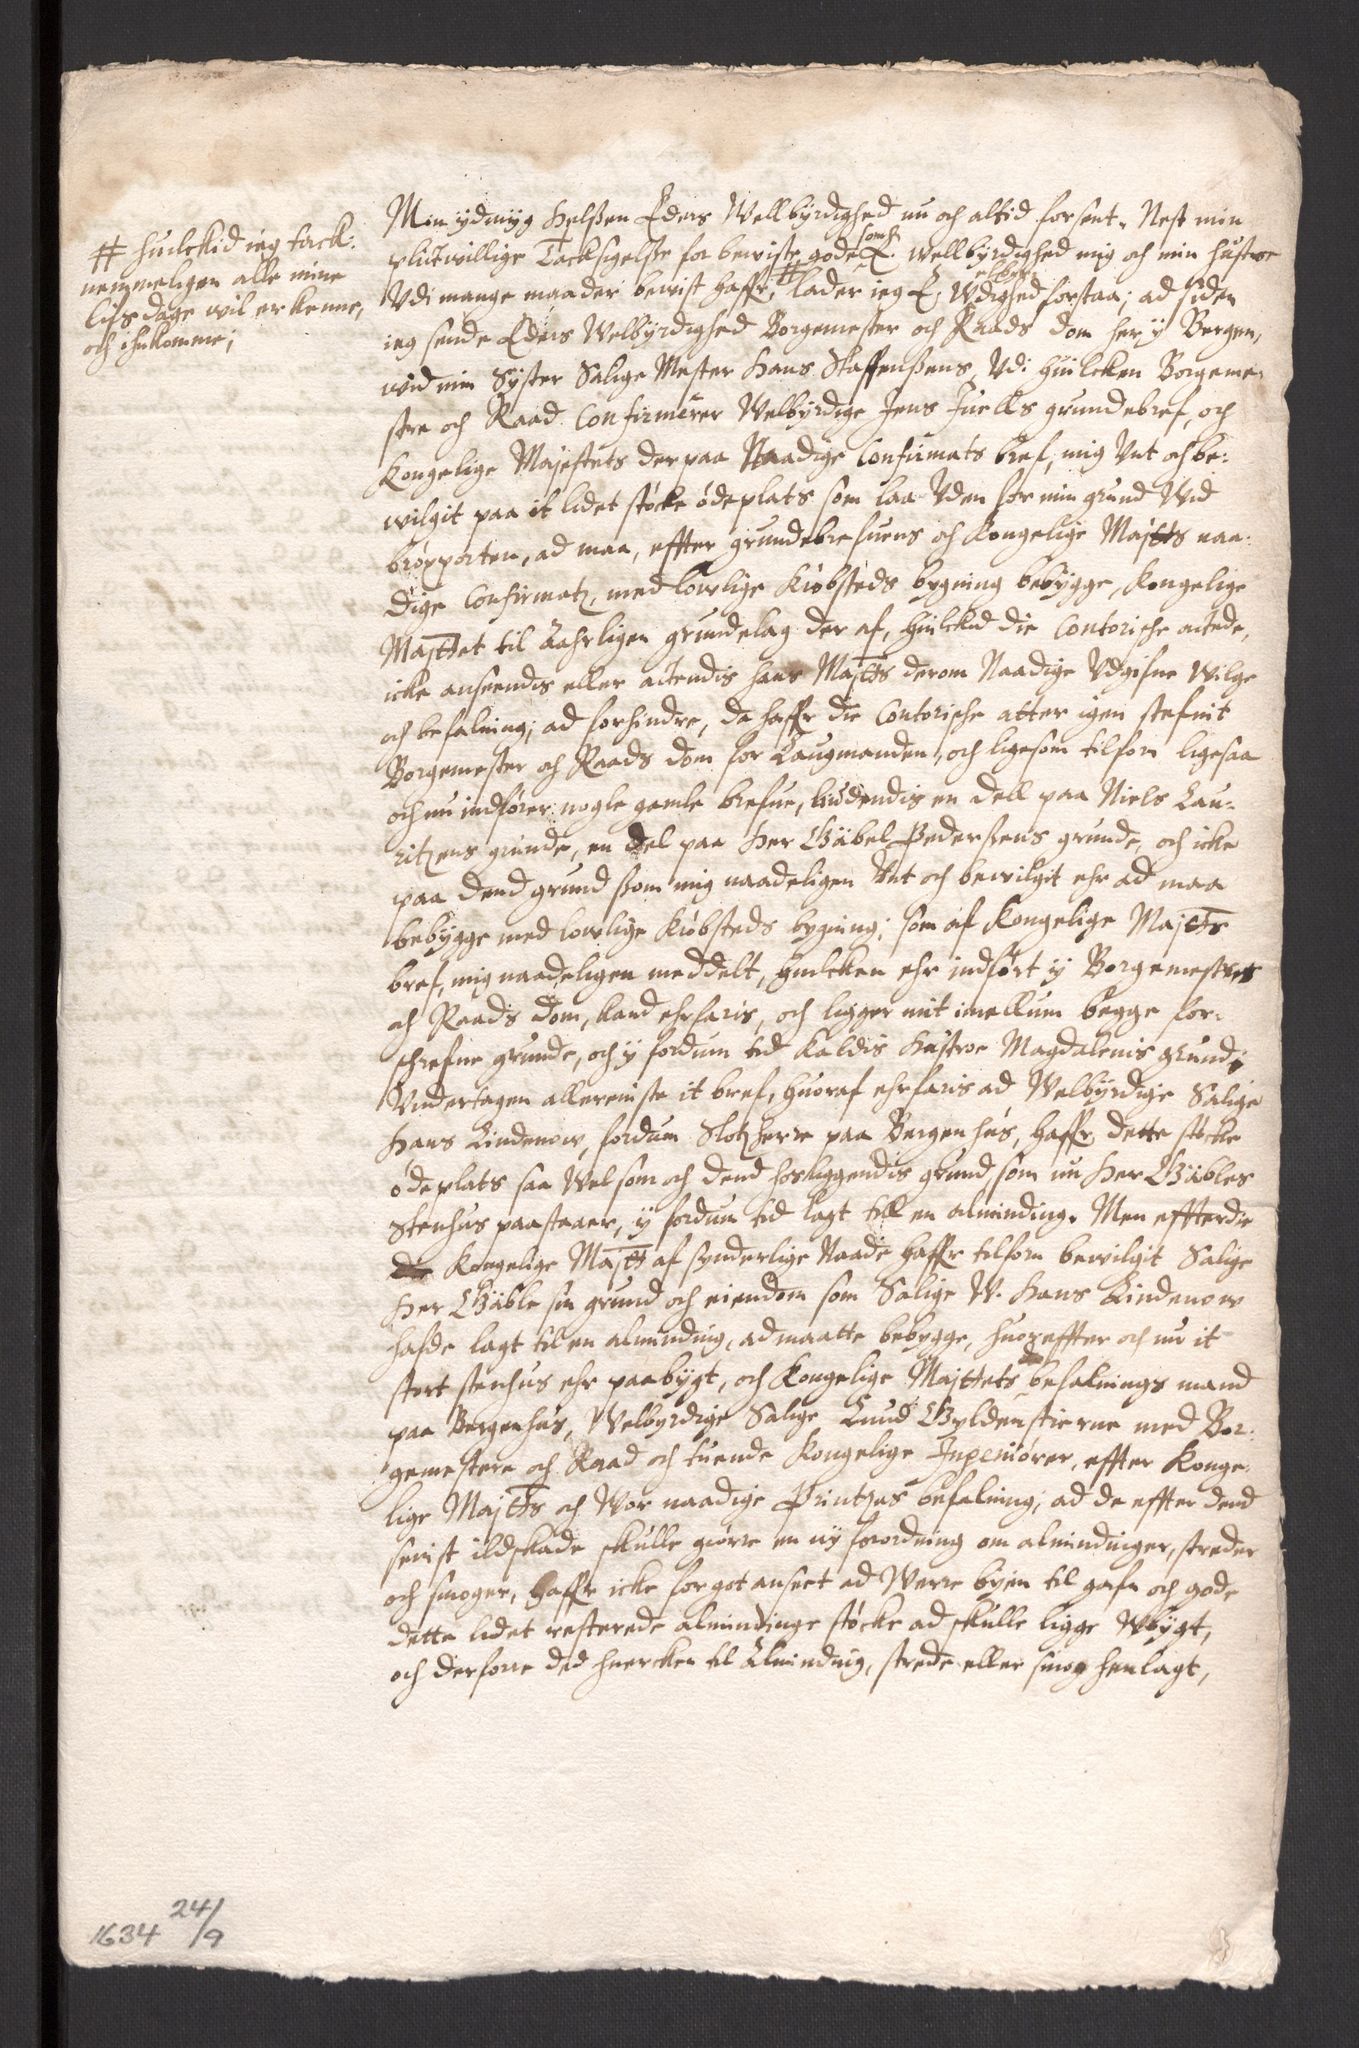 # huilckid ieg tack:
nemmeligen alle mine
lifs dage wil erkenne,
och ihukomme;
Min ydmyg helssen Eders Wellbyrdighed nu och altid forsent. Nest min
plictwillige Tacksigelsse for bewiste gode som E. wellbyrdighed mig och min hustroe
Vdi mange maader bewist haffr, # lader ieg E. Wdighed forstaa; ad siden
ieg sende Eders Welbyrdighed Borgemester och Raads dom her y Bergen,
wid min Syster Salige Mester Hans Staffenssens, Vdi huilcken Borgeme-
stre och Raad Confirmerer Welbyrdige Jens Juells grundebref, och
Kongelige Majestets derpaa Naadige Confirmats bref, mig Unt och be:
wilgit paa it lidet støcke ødeplats som laa Uden for min grund Wid
broporten, ad maa, effter grundebrefuens och Kongelige Majtts naa:
dige Confirmatz, med lowlige Kiøbsteds bygning bebygge, Kongelige
Majttet til Aahrligen grundelag der af, huilckid die Contorische actede,
icke anseendis eller actendis hans Majtts derom Naadige Udgifne Wilge
och befalning, ad forhindre, da haffr die Contorische atter igen stefnit
Borgemester och Raads dom for Laugmanden, och ligesom tilforn ligesaa
och nu indfører nogle gamle brefue, liudendis en dell paa Niels Lau-
ritzens grunde, en del paa Her Gäbel Pederssens grunde, och icke
paa dend grund ssom mig naadeligen Unt och bewilgit ehr ad maa
bebygge med lowlige Kiøbsteds bygning; som af Kongelige Majtts
bref, mig naadeligen meddelt, huilcken ehr indført y Borgemesters
och Raads dom, kand ehrfaris, och ligger mit imellum begge for-
schrefne grunde, och y fordum tid kaldis Hustroe Magdalenis grund;
Undertagen alleeniste it bref, huoraf ehrfaris ad Welbyrdige Salige
Hans Lindenow, fordum Slotzherre paa Bergenhus, haffr dette støcke
ødeplats saa Wel som och dend hosliggendis grund, som nu Her Gäbles
Stenhus paastaaer, y fordum tid lagt till en alminding. Men effterdie
Kongelige Majtt af synderlige Naade haffr tilforn bewilgit Salige
Her Gäble sin grund och eiendom som Salige W. Hans Lindenow
hafde lagt til en alminding, ad maatte bebygge, huoreffter och nu it
stort stenhus ehr paabygt, och Kongelige Majttets befalnings mand
paa Bergenhus, Welbyrdige Salige Knud Gyldenstierne med Bor-
gemestere och Raad och tuende Kongelige Ingeniører, effter Konge-
lige Majtts och Wor naadige Printzes befalning, ad de effter dend
senist ildskade skulle giørre en ny forordning om almindinger, streder
och smoger, haffr icke for got anseet ad Werre byen til gafn och gode
dette lidet resterede almindinge støcke ad skulle ligge Ubygt,
och derforre ded huercken til Alminding, strede eller smog henlagt,
1634 24/9